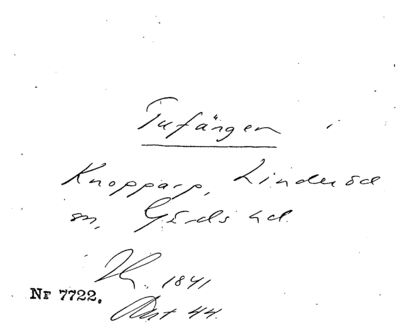 Tufängen i
Knopparp, Linderöd
sn, Gärds hd.
1841
Nr 7722.
44.